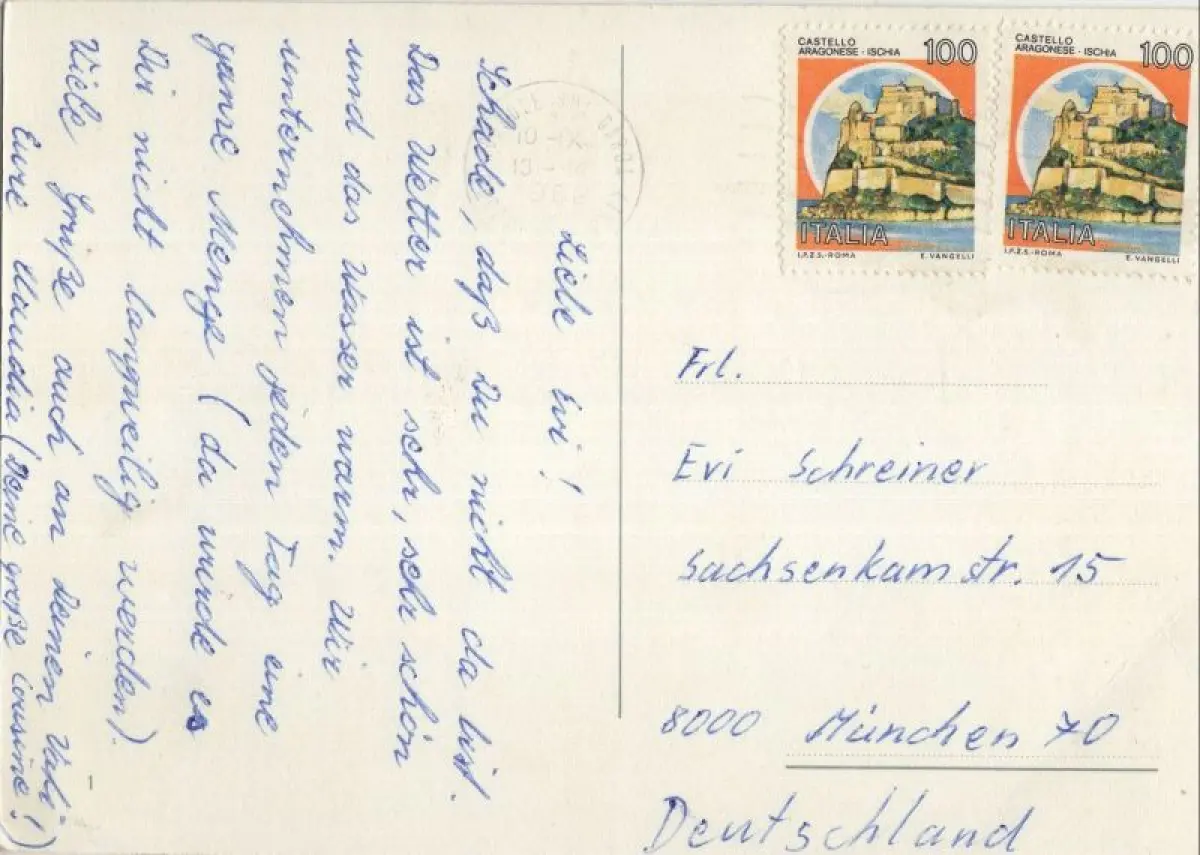 Liebe Evi!
Schade, daß Du nicht da bist.
Das Wetter ist sehr, sehr schön
und das Wasser warm. Wir
unternehmen jeden Tag eine
ganze Menge (da würde es
Dir nicht langweilig werden).
Viele Grüße auch an Deinen Vati
Eure Claudia (Deine große Cousine!)
CASTELLO
ARAGONESE - ISCHIA 100
ITALIA
I.P.Z.S. - ROMA E. VANGELLI
CASTELLO
ARAGONESE - ISCHIA 100
ITALIA
I.P.Z.S. - ROMA E. VANGELLI
Frl.
Evi Schreiner
Sachsenkamstr. 15
8000 München 70
Deutschland